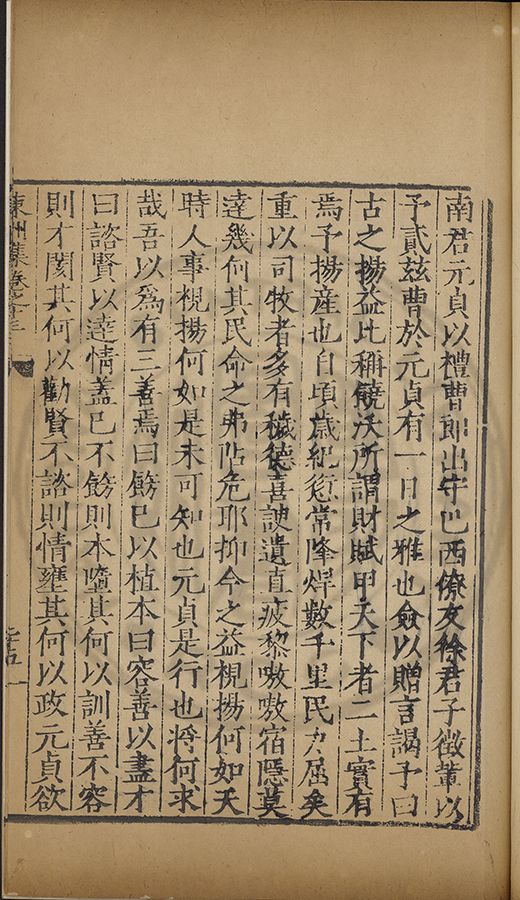 南君元貞以禮曹郎出守巴西僚友徐君子徵輩以
予貳茲曹於元貞有一日之雅也僉以贈言謁予曰
古之揚益比稱饒沃所謂財賦甲天下者二土實有
焉予揚産也自頃歳紀愆常隆熯數千里民力屈矣
重以司牧者多有穢德喜諛遺直疲黎嗷嗷宿隱莫
達幾何其民命之弗阽危耶抑今之益視揚何如天
時人事視揚何如是未可知也元貞是行也將何求
哉吾以為有三善焉曰飭巳以植本曰容善以盡才
曰諮賢以達情蓋巳不飭則本墮其何以訓善不容
則才閡其何以勸賢不諮則情壅其何以政元貞欲
東州集卷之十三
一